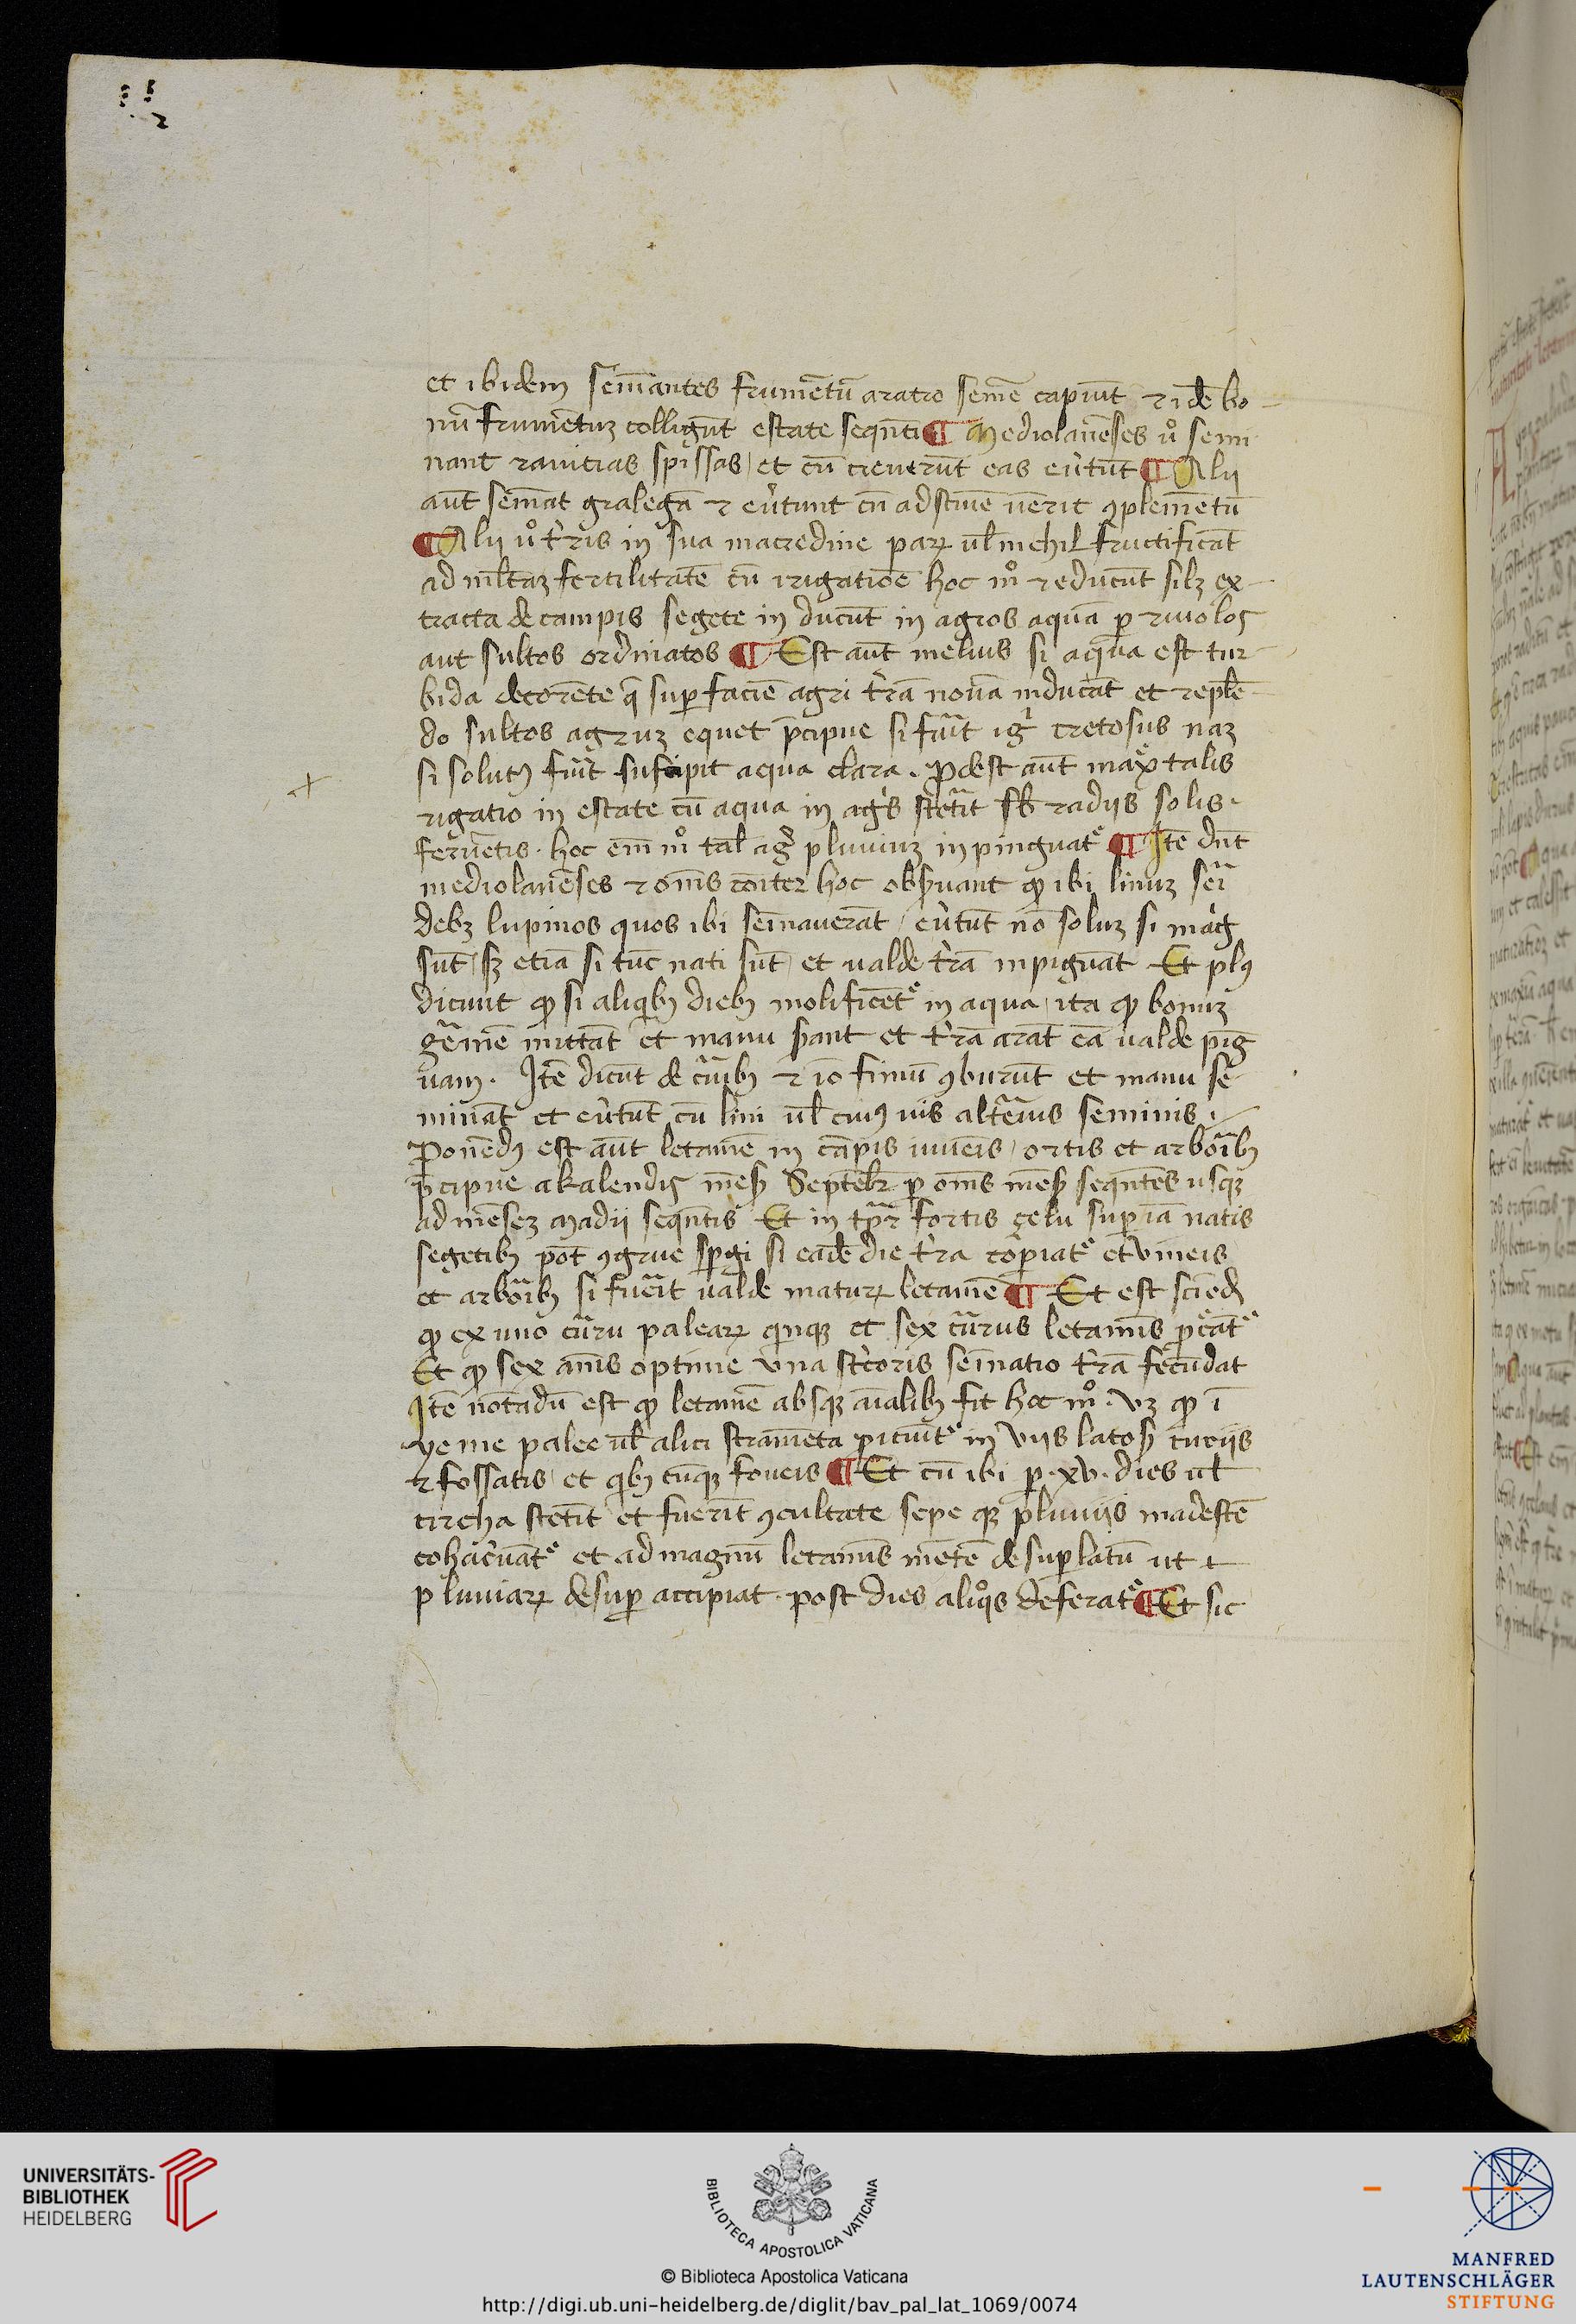 et ibidem semīantes frumētū aratro semē capiūt ⁊ idē bo-
nū frumētuꝫ colligūt estate seqn̄ti ¶ Mediolanēses ů semi
nant ranicias spissas / et cū creuerūt eas eůtūt ¶ Alij
aūt semīat gralegā ⁊ eůtunt cū ad stīuē uēnerit ꝯplemētū
¶ Alij ů tr̄is in sua macredine paꝝ ul̄ nichil fructificāt
ad ml̄taꝫ fertilitatē cū irigatiōe hoc mº ⁊ educūt silꝫ ex-
tracta de campis segete in ducūt in agros aquā ꝑ riuolos
aut sultos ordinatos ¶ Est aūt melius si aqua est tur-
bida decorēte q̄ suꝑfaciē agri tr̄ā nouā inducāt et replē-
do sultos agruꝫ equet p̄cipue si fuīt ig̃ cretosus naꝫ
si solutꝰ fuīt suscipit aqua clara . ꝓdest aūt max̄ talis
rigatio in estate cū aqua in ag̃s stetīt sb̄ radijs solis .
feruētis . hoc em̄ mº tal̄ ag̃ pluuiuꝫ inpinguatᷣ ¶ Itē dn̄t
mediolanēses ⁊ om̄s cōiter hoc obẜuant ꝙ ibi linuꝫ serī
debꝫ lupinos quos ibi semīauerāt / eůtūt nō soluꝫ si māg
sūt / sꝫ etiā si tūc nati sūt / et ualde tr̄ā inpiguāt Et plꝰ
dicunt ꝙ si aliqͥbꝫ diebꝫ molificētᷣ in aqua / ita ꝙ bonuꝫ
g̃mīe mittāt et manu ẜant et tr̄ā arāt eā ualde pīg
uam . Itē dicūt de cīnibꝫ ⁊ iō fimū ꝯburūt et manu se-
mināt et eůtūt cū lini ul̄ cuiꝰ uis alterīus seminis .
Ponēdꝰ est aūt letamē in cāpis iuuēis / ortis et arborībꝫ
p̄cipue a kalendis mēẜ Septēbr̄ ꝑ om̄s mēẜ seqn̄tes usqꝫ
ad mēseꝫ madij seqn̄tis Et in tpr̄e fortis gelu suꝑ iā natis
segetibꝫ pōt ꝯgrue sꝑgi si eadē die tr̄a coꝑiatᷣ et vineis
et arborībꝫ si fuerīt ualde matuꝝ letamē ¶ Et est sciēdꝰ
ꝙ ex uno cūrru paleaꝝ qͥnqꝫ et sex cūrrus letamīs ꝑcātᷣ
Et ꝙ sex anīs optime vna stercoris semīatio tr̄ā fecūdat
Itē notādū est ꝙ letamē absqꝫ aīalibꝫ fit hoc mº . vꝫ ꝙ ī
hyeme palee ul̄ alia stramēta ꝓiciuīt in vijs latoẜ curijs
⁊ fossatis / et qͥbꝫ cūqꝫ foueis ¶ Et cū ibi ꝑ . xv . dies ul̄
circha stetīt et fuerīt ꝯcultate sepe qꝫ pluuijs madestē
cohac̃uātᷣ et ad magnū letamīs mētē desuꝑlatū ut ⁊
pluuiaꝝ desuꝑ accipiat . post dies aliqͦs deferatᷣ ¶ Et sic
UNIVERSITÄTS-
BIBLIOTHEK
HEIDELBERG
BIBLIOTECA APOSTOLICA VATICANA
© Biblioteca Apostolica Vaticana
http://digi.ub.uni-heidelberg.de/diglit/bav_pal_lat_1069/0074
MANFRED
LAUTENSCHLÄGER
STIFTUNG